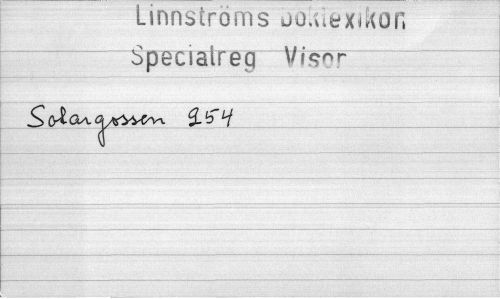 Linnströms boklexikon
Specialreg Visor
Solargossen 254